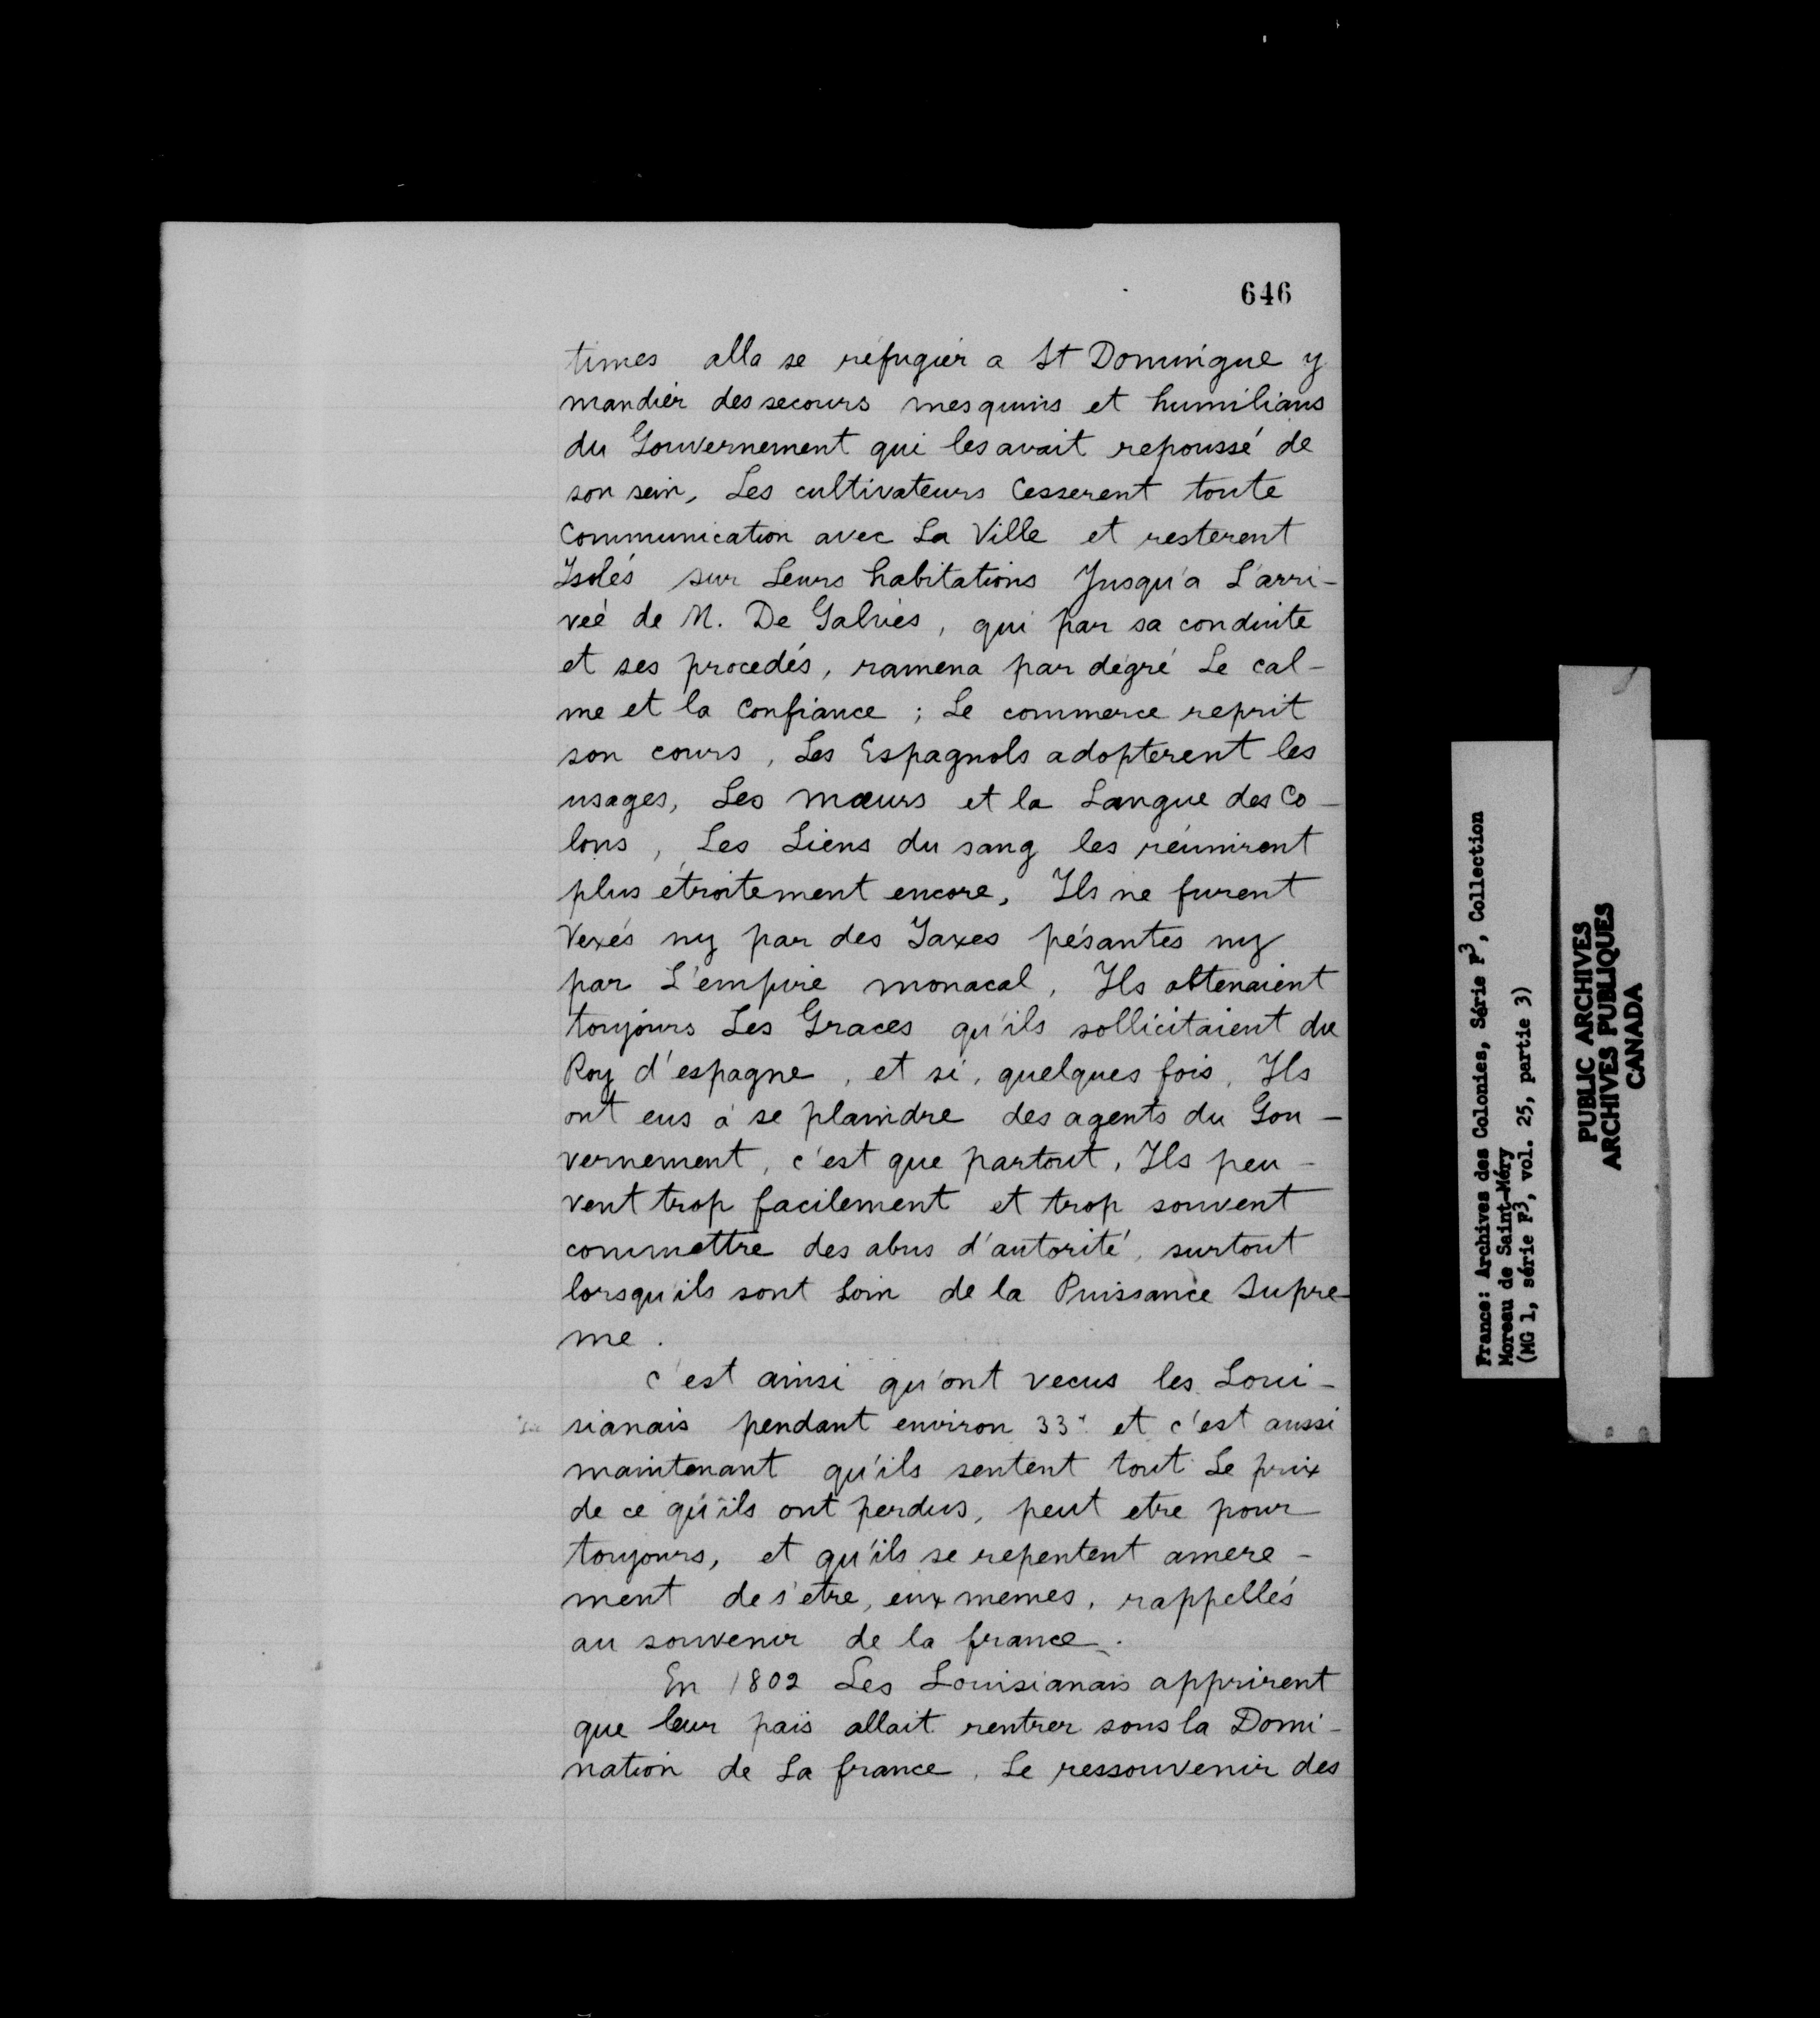 646
times alla se réfugier a St Domingue y
mandier des secours mesquins et humilians
du Gouvernement qui les avait repoussé de
son sein, Les cultivateurs Cesserent toute
Communication avec La Ville et resterent
Isolés sur Leurs habitations Jusqu'a L'arri-
veé de M. De Galvès, qui par sa conduite
et ses procedés, ramena par dégré Le cal-
me et la Confiance ; Le commerce reprit
son cours, Les Espagnols adopterent les
usages, Les mœurs et la Langue des Co-
lons, Les Liens du sang les réunirent
plus étroitement encore, Ils ne furent
Vexés ny par des Taxes pésantes ny
par L'empire monacal, Ils obtenaient
toujours Les Graces qu'ils sollicitaient du
Roy d'espagne, et si, quelques fois, Ils
ont eus à se plaindre des agents du Gou-
vernement, c'est que partout, Ils peu-
vent trop facilement et trop souvent
commettre des abus d'autorité, surtout
lorsqu'ils sont Loin de la Puissance Supre-
me.
c'est ainsi qu'ont vecus les Loui-
sianais pendant environ 33 et c'est aussi
maintenant qu'ils sentent tout Le prix
de ce qu'ils ont perdus, peut etre pour
toujours, et qu'ils se repentent amere-
ment de s'etre, eux memes, rappellés
au souvenir de la france.
En 1802 Les Louisianais apprirent
que leur païs allait rentrer sous la Domi-
nation de La france. Le ressouvenir des
France: Archives des Colonies, Série F3, Collection
Moreau de Saint-Méry
(MG 1, série F3, vol. 25, partie 3)
PUBLIC ARCHIVES
ARCHIVES PUBLIQUES
CANADA